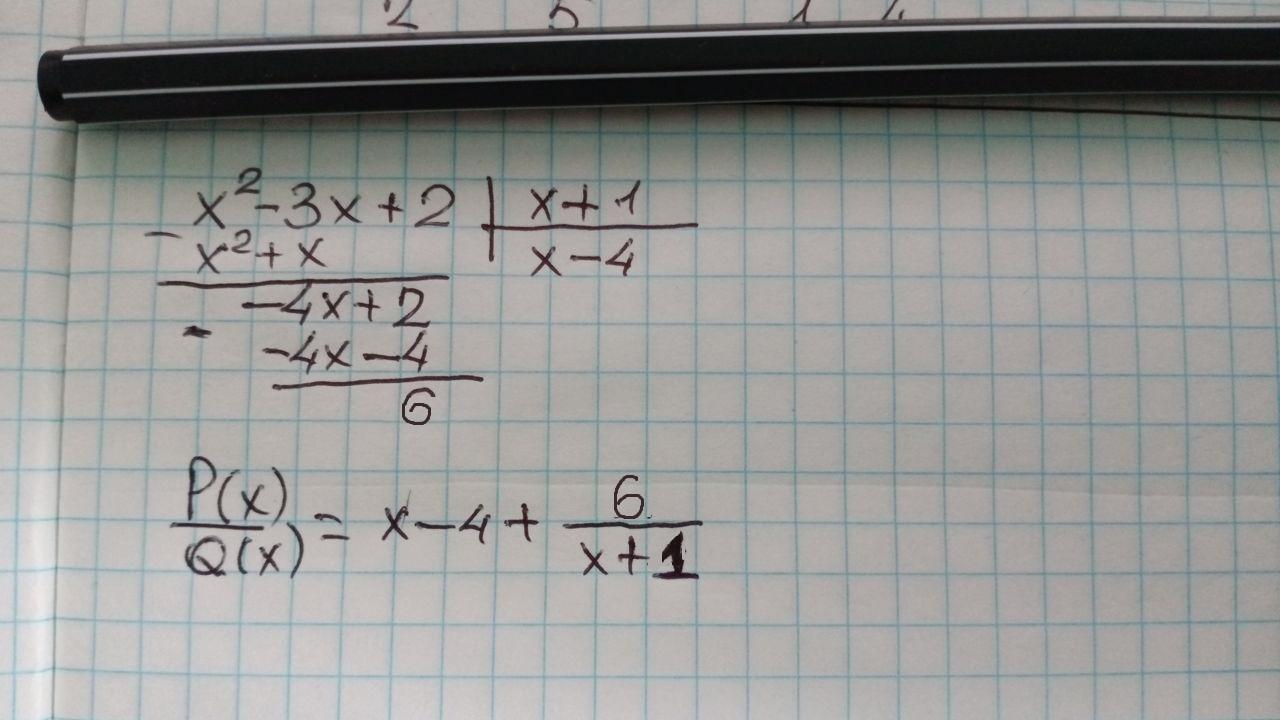 x² - 3x + 2 | x + 1
- x² + x | x - 4
-4x + 2
- -4x - 4
6
P(x)/Q(x) = x - 4 + 6/(x + 1)